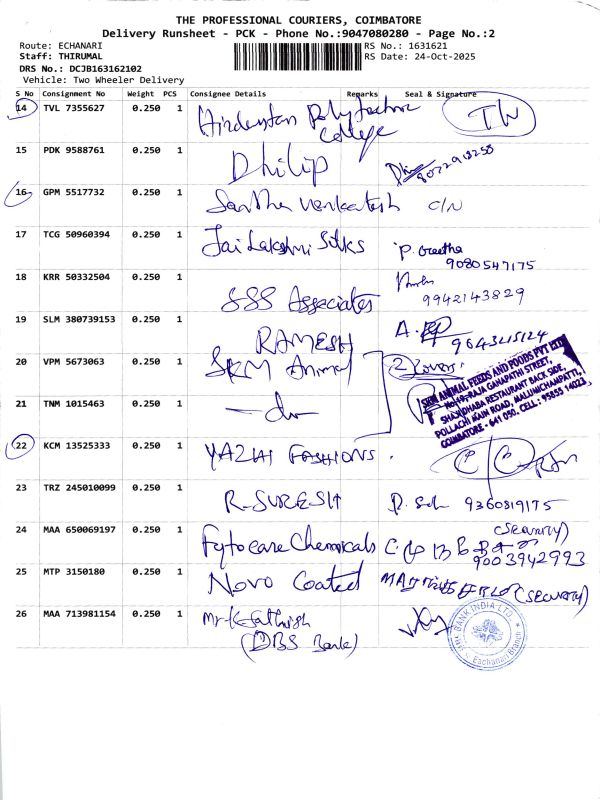 THE PROFESSIONAL COURIERS, COIMBATORE
Delivery Runsheet - PCK - Phone No.:9047080280 - Page No.:2
Route: ECHANARI RS No.: 1631621
Staff: THIRUMAL RS Date: 24-Oct-2025
DRS No.: DCJB163162102
Vehicle: Two Wheeler Delivery
S No Consignment No Weight PCS Consignee Details Remarks Seal & Signature
14 TVL 7355627 0.250 1 Hindustan Polytechnic
College
15 PDK 9588761 0.250 1 Dhilip
16 GPM 5517732 0.250 1 Santha Venkatesh C/N
17 TCG 50960394 0.250 1 Jai Lakshmi Silks P. Geetha
9080547175
18 KRR 50332504 0.250 1 SSS Associates
9942143829
19 SLM 380739153 0.250 1 RAMESH A.
20 VPM 5673063 0.250 1 SKM Animal 2 Covers
SKM ANIMAL FEEDS AND FOODS PVT LTD
RAJA GANAPATHI STREET,
SHAJI DHABA RESTAURANT BACK SIDE,
POLLACHI MAIN ROAD, MALUMICHAMPATTI,
COIMBATORE - 641 050. CELL : 95855 14023
21 TNM 1015463 0.250 1 - do -
22 KCM 13525333 0.250 1 YAZHI FASHIONS.
23 TRZ 245010099 0.250 1 R. SURESH 9360819175
24 MAA 650069197 0.250 1 Fytocare Chemicals (Security)
9003942993
25 MTP 3150180 0.250 1 Novo Coated (SECURITY)
26 MAA 713981154 0.250 1 Mr. K. Sathish
(DBS Bank)
BANK INDIA LTD.
Eachanari Branch